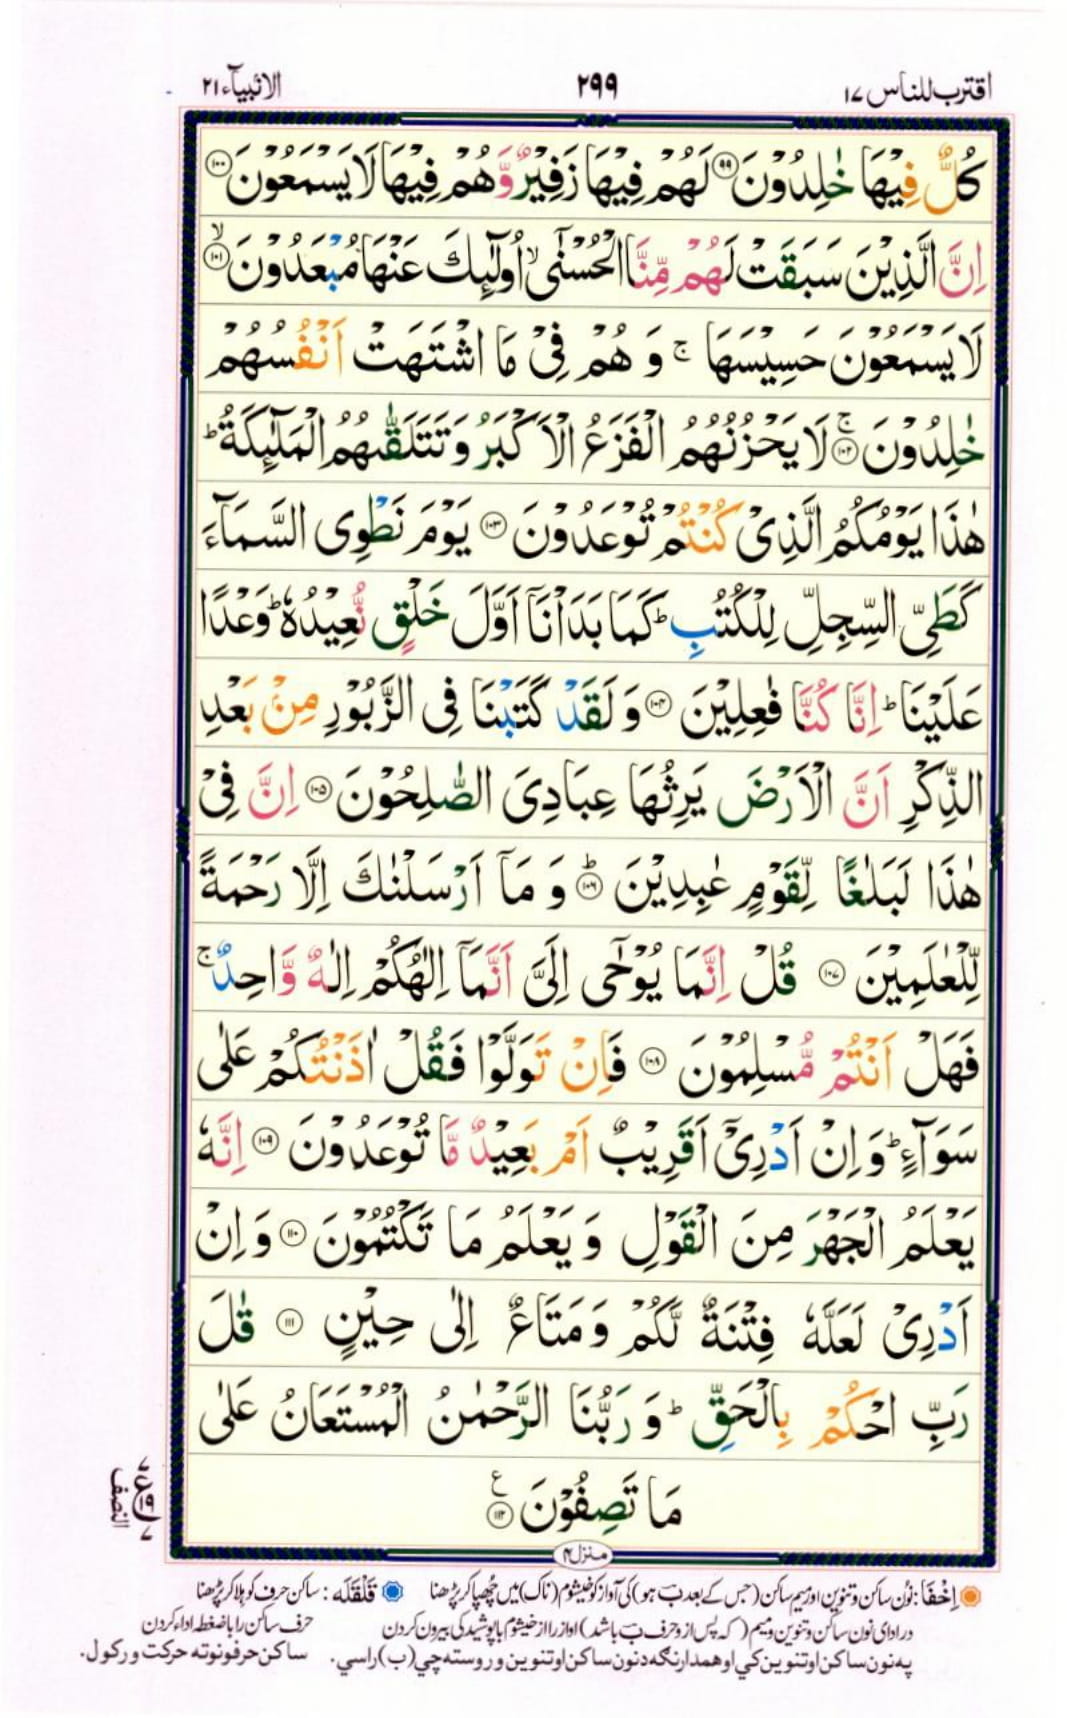 اقترب للناس ١٧
٢٩٩
الانبیآء ٢١
كُلٌّ فِيْهَا خٰلِدُوْنَ ۝٩٩ لَهُمْ فِيْهَا زَفِيْرٌ وَّ هُمْ فِيْهَا لَا يَسْمَعُوْنَ ۝١٠٠
اِنَّ الَّذِيْنَ سَبَقَتْ لَهُمْ مِّنَّا الْحُسْنٰۤىۙ اُولٰٓئِكَ عَنْهَا مُبْعَدُوْنَ ۝١٠١ۙ
لَا يَسْمَعُوْنَ حَسِيْسَهَا ۚ وَ هُمْ فِيْ مَا اشْتَهَتْ اَنْفُسُهُمْ
خٰلِدُوْنَ ۝١٠٢ۚ لَا يَحْزُنُهُمُ الْفَزَعُ الْاَكْبَرُ وَ تَتَلَقّٰىهُمُ الْمَلٰٓئِكَةُ ؕ
هٰذَا يَوْمُكُمُ الَّذِيْ كُنْتُمْ تُوْعَدُوْنَ ۝١٠٣ يَوْمَ نَطْوِى السَّمَآءَ
كَطَيِّ السِّجِلِّ لِلْكُتُبِ ؕ كَمَا بَدَاْنَاۤ اَوَّلَ خَلْقٍ نُّعِيْدُهٗ ؕ وَعْدًا
عَلَيْنَا ؕ اِنَّا كُنَّا فٰعِلِيْنَ ۝١٠٤ وَ لَقَدْ كَتَبْنَا فِى الزَّبُوْرِ مِنْۢ بَعْدِ
الذِّكْرِ اَنَّ الْاَرْضَ يَرِثُهَا عِبَادِيَ الصّٰلِحُوْنَ ۝١٠٥ اِنَّ فِيْ
هٰذَا لَبَلٰغًا لِّقَوْمٍ عٰبِدِيْنَ ۝١٠٦ؕ وَ مَاۤ اَرْسَلْنٰكَ اِلَّا رَحْمَةً
لِّلْعٰلَمِيْنَ ۝١٠٧ قُلْ اِنَّمَا يُوْحٰۤى اِلَيَّ اَنَّمَاۤ اِلٰهُكُمْ اِلٰهٌ وَّاحِدٌ ۚ
فَهَلْ اَنْتُمْ مُّسْلِمُوْنَ ۝١٠٨ فَاِنْ تَوَلَّوْا فَقُلْ اٰذَنْتُكُمْ عَلٰى
سَوَآءٍ ؕ وَ اِنْ اَدْرِيْۤ اَقَرِيْبٌ اَمْ بَعِيْدٌ مَّا تُوْعَدُوْنَ ۝١٠٩ اِنَّهٗ
يَعْلَمُ الْجَهْرَ مِنَ الْقَوْلِ وَ يَعْلَمُ مَا تَكْتُمُوْنَ ۝١١٠ وَ اِنْ
اَدْرِيْ لَعَلَّهٗ فِتْنَةٌ لَّكُمْ وَ مَتَاعٌ اِلٰى حِيْنٍ ۝١١١ قٰلَ
رَبِّ احْكُمْ بِالْحَقِّ ؕ وَ رَبُّنَا الرَّحْمٰنُ الْمُسْتَعَانُ عَلٰى
مَا تَصِفُوْنَ ۝١١٢ع
ع
١٩
٧
النصف
منزل ٤
اِخْفَا : نُون ساکن و تنوین اور میم ساکن (جس کے بعد بَ ہو) کی آواز کو خیشوم (ناک) میں چُھپا کر پڑھنا قَلْقَلَه : ساکن حرف کو ہلا کر پڑھنا
در ادای نون ساکن و تنوین و میم (که پس از و حرف بَ باشد) اواز را از خیشوم با پوشیدگی بیرون کردن حرف ساکن را با ضغط اداء کردن
په نون ساکن او تنوین کي او همدارنګه د نون ساکن او تنوین وروسته چي (ب) راسي. ساکن حرفونو ته حرکت ورکول.